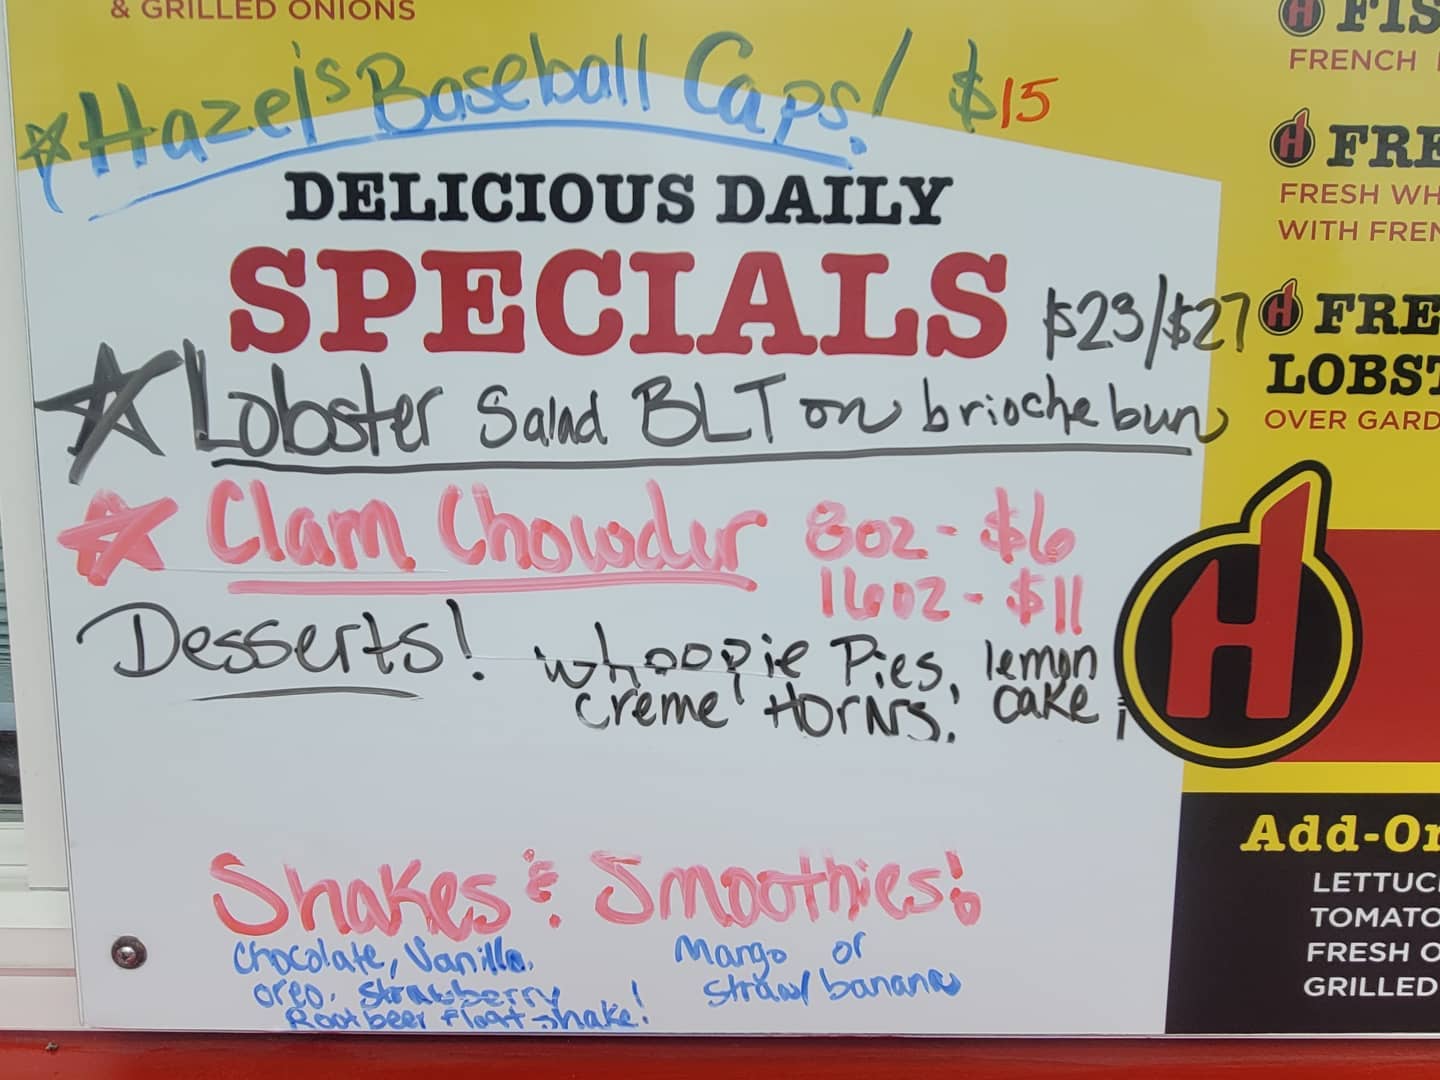 & GRILLED ONIONS
Hazel's Baseball Caps! $15
DELICIOUS DAILY
SPECIALS
$23/$27
Lobster Salad BLT on brioche bun
Clam Chowder 8oz - $6
16oz - $11
Desserts! whoopie Pies, lemon
creme HORNS! cake!
Shakes & Smoothies!
Chocolate, Vanilla,
oreo, Strawberry
Rootbeer float shake!
Mango or
straw/banana
FIS
FRENCH
FRE
FRESH WH
WITH FREN
FRE
LOBST
OVER GARD
H
Add-On
LETTUC
TOMATO
FRESH O
GRILLED